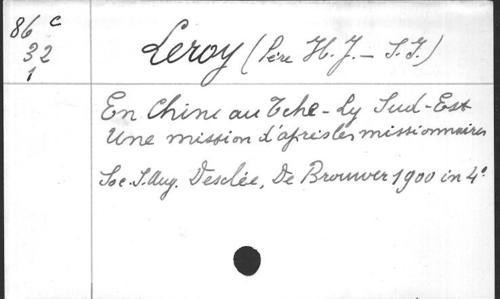 86 c
32
1
Leroy (Père H. J. – S. J.)
En Chine au Tche-Ly Sud-Est
Une mission d'après les missionnaires
Soc. S. Aug. Desclée, De Brouwer 1900 in 4°